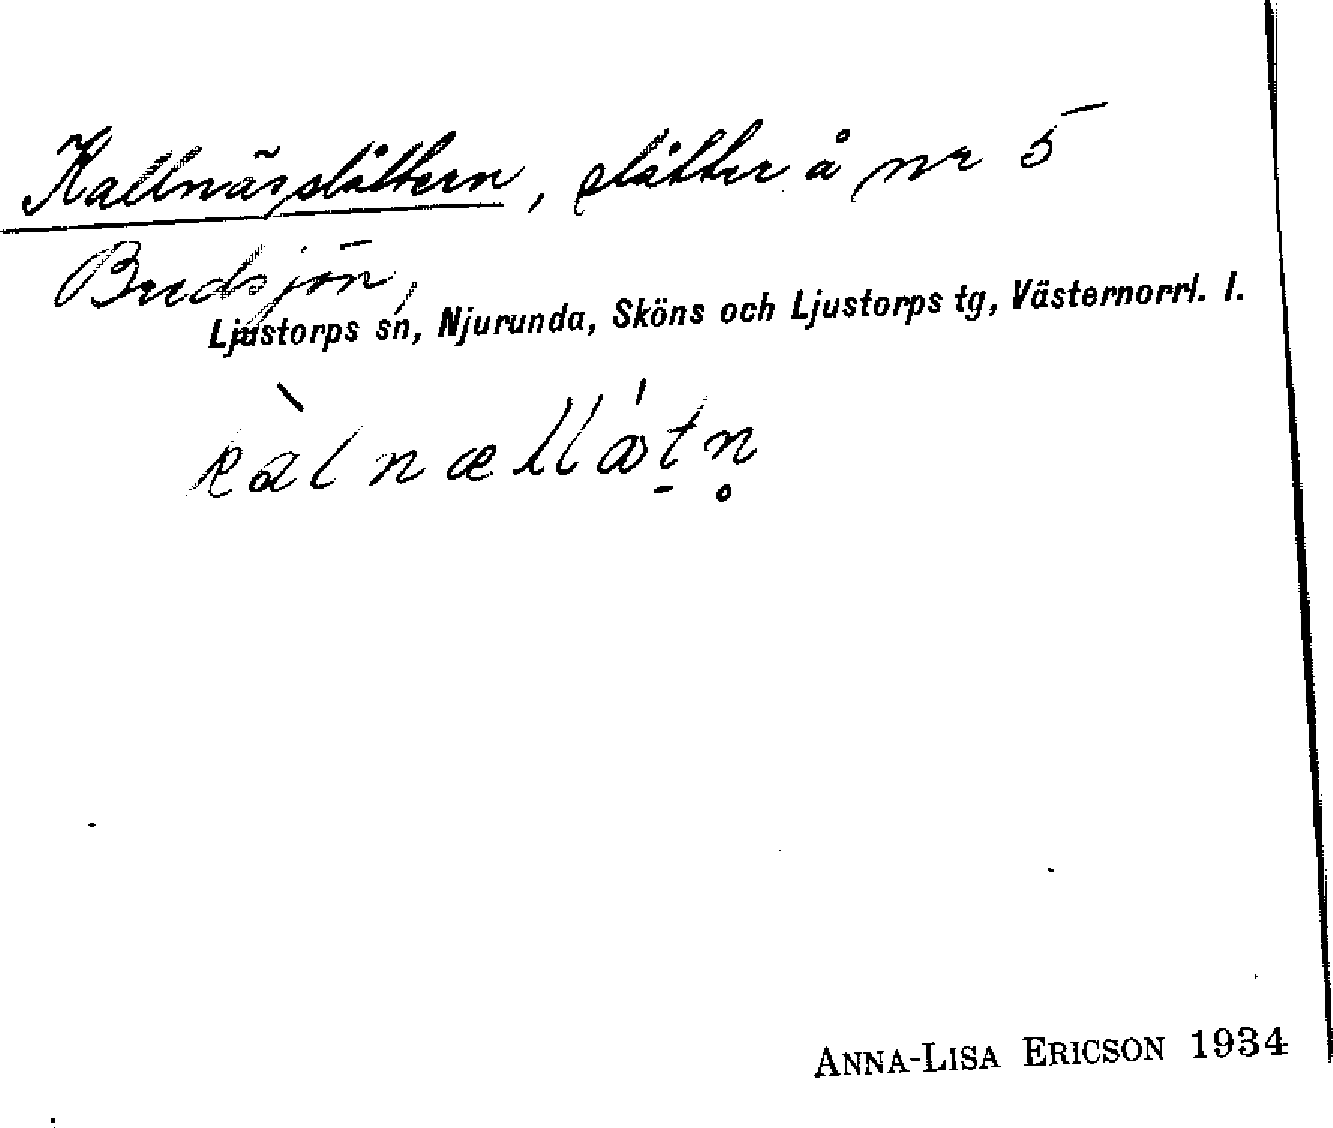 Kallnärslåttern, slåtter å nr 5
Bredsjön,
Ljustorps sn, Njurunda, Sköns och Ljustorps tg, Västernorrl. l.
ANNA-LISA ERICSON 1934